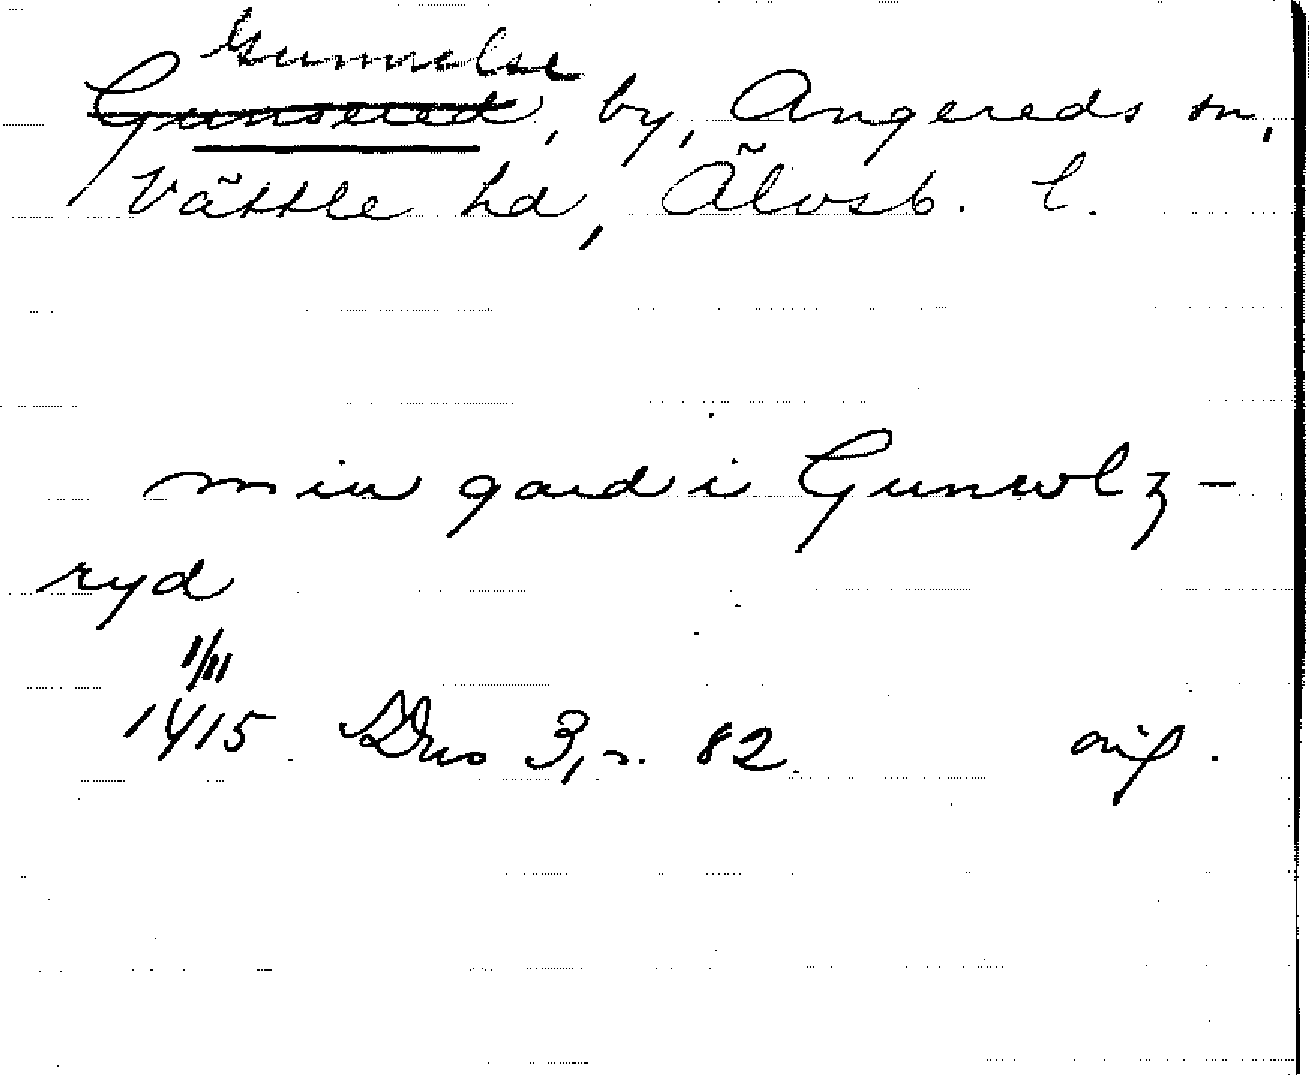 Gunnelse
Gunsered, by, Angereds sn,
Vättle hd, Älvsb. l.
min gard i Gunwlz-
ryd
1/11
1415. SDns 3, s. 82 or.